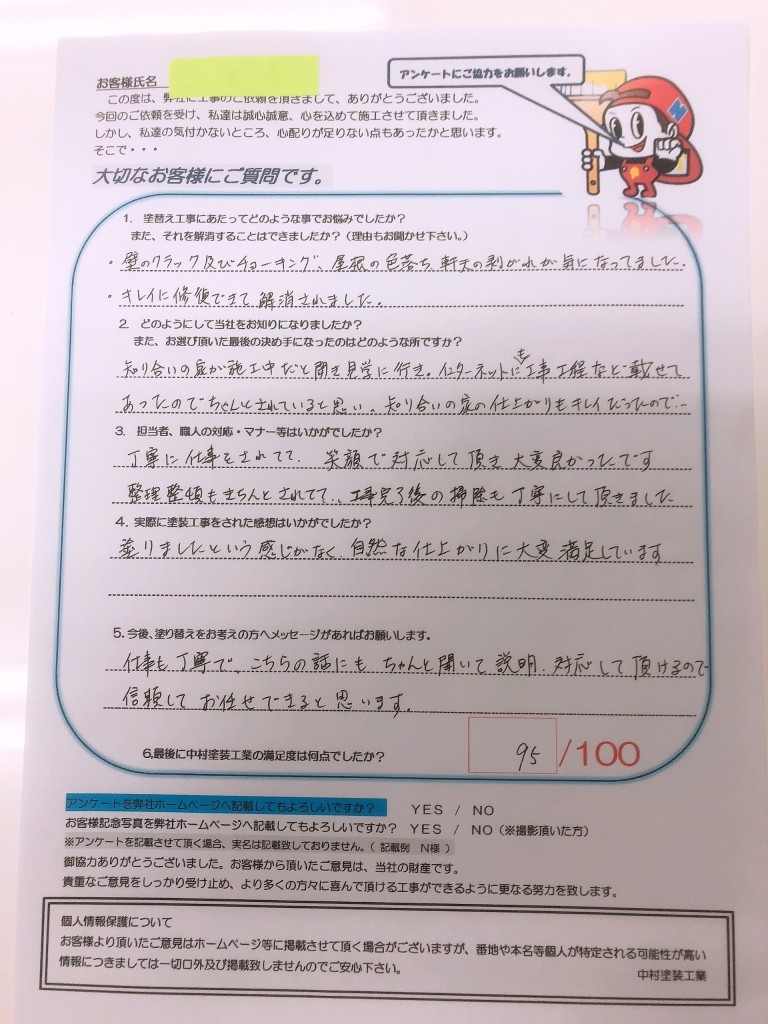 お客様氏名
アンケートにご協力をお願いします。
この度は、弊社に工事のご依頼を頂きまして、ありがとうございました。
今回のご依頼を受け、私達は誠心誠意、心を込めて施工させて頂きました。
しかし、私達の気付かないところ、心配りが足りない点もあったかと思います。
そこで・・・
大切なお客様にご質問です。
1. 塗替え工事にあたってどのような事でお悩みでしたか？
また、それを解消することはできましたか？（理由もお聞かせ下さい。）
・壁のクラック及びチョーキング、屋根の色落ち、軒天の剥がれが気になってました。
・キレイに修復できて、解消されました。
2. どのようにして当社をお知りになりましたか？
また、お選び頂いた最後の決め手になったのはどのような所ですか？
知り合いの家が施工中だと聞き見学に行き。インターネットにも工事工程など載せて
あったのでちゃんとされていると思い、知り合いの家の仕上がりもキレイだったので…
3. 担当者、職人の対応・マナー等はいかがでしたか？
丁寧に仕事をされてて、笑顔で対応して頂き大変良かったです
整理整頓もきちんとされてて、工事完了後の掃除も丁寧にして頂きました
4. 実際に塗装工事をされた感想はいかがでしたか？
塗りましたという感じがなく、自然な仕上がりに大変満足しています
5. 今後、塗り替えをお考えの方へメッセージがあればお願いします。
仕事も丁寧で、こちらの話にもちゃんと聞いて説明、対応して頂けるので
信頼してお任せできると思います。
6.最後に中村塗装工業の満足度は何点でしたか？ 95 /100
アンケートを弊社ホームページへ記載してもよろしいですか？ YES / NO
お客様記念写真を弊社ホームページへ記載してもよろしいですか？ YES / NO（※撮影頂いた方）
※アンケートを記載させて頂く場合、実名は記載致しておりません。（ 記載例 N様 ）
御協力ありがとうございました。お客様から頂いたご意見は、当社の財産です。
貴重なご意見をしっかり受け止め、より多くの方々に喜んで頂ける工事ができるように更なる努力を致します。
個人情報保護について
お客様より頂いたご意見はホームページ等に掲載させて頂く場合がございますが、番地や本名等個人が特定される可能性が高い
情報につきましては一切口外及び掲載致しませんのでご安心下さい。 中村塗装工業